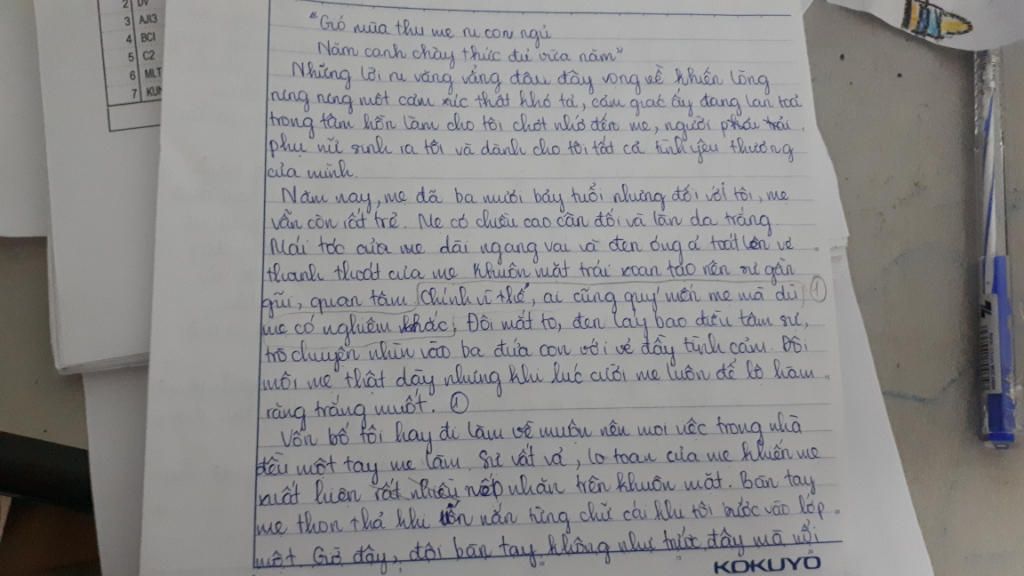 2 DV
3 AJI3
4 BCI
5 C2
6 MLT
7 KUN
"Gió mùa thu mẹ ru con ngủ
Năm canh chày thức đủ vừa năm"
Những lời ru văng vẳng đâu đây vọng về khiến lòng
nưng nưng một cảm xúc thật khó tả, cảm giác ấy đang lan toả
trong tâm hồn làm cho tôi chợt nhớ đến mẹ, người
phụ nữ sinh ra tôi và dành cho tôi tất cả tình yêu thương
của mình.
Năm nay, mẹ đã ba mươi bảy tuổi nhưng đối với tôi, mẹ
vẫn còn rất trẻ. Mẹ có chiều cao cân đối và làn da trắng
Mái tóc của mẹ dài ngang vai và đen óng ả toát lên vẻ
thanh thoát của mẹ khuôn mặt trái xoan tạo nên sự gần
gũi, quan tâm Chính vì thế, ai cũng quý mến mẹ mà dù 1
mẹ có nghiêm khắc, Đôi mắt to, đen láy bao điều tâm sự,
trò chuyện nhìn vào ba đứa con với vẻ đầy tình cảm. Đôi
môi mẹ thật dày nhưng khi lúc cười mẹ luôn để lộ hàm
răng trắng muốt. 1
Vốn bố tôi hay đi làm về muộn nên mọi việc trong nhà
đều một tay mẹ làm. Sự vất vả, lo toan của mẹ khiến mẹ
xuất hiện rất nhiều nếp nhăn trên khuôn mặt. Bàn tay
mẹ thon thả khi uốn nắn từng chữ cái khi tôi bước vào lớp
một Giờ đây, đôi bàn tay không như trước đây mà nổi
KOKUYO